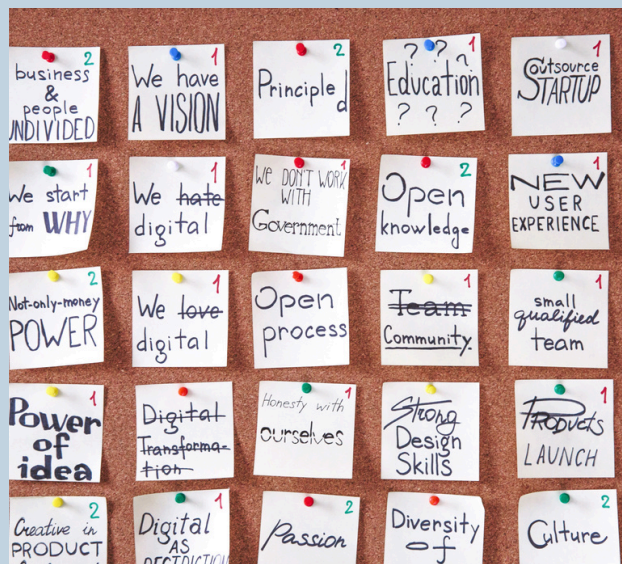 2
business
&
people
UNDIVIDED
1
We have
A VISION
2
Principled
1
? ? ?
Education
? ? ?
1
Outsource
STARTUP
1
We start
from WHY
1
We hate
digital
1
WE DON'T WORK
WITH
Government
2
Open
knowledge
1
NEW
USER
EXPERIENCE
2
Not-only-money
POWER
1
We love
digital
Open
process
1
Team
Community
1
small
qualified
team
1
Power
of
idea
Digital
Transforma-
tion
1
Honesty with
ourselves
Strong
Design
Skills
1
PRODUCTS
LAUNCH
2
Creative in
PRODUCT
1
Digital
AS
2
Passion
Diversity
of
2
Culture